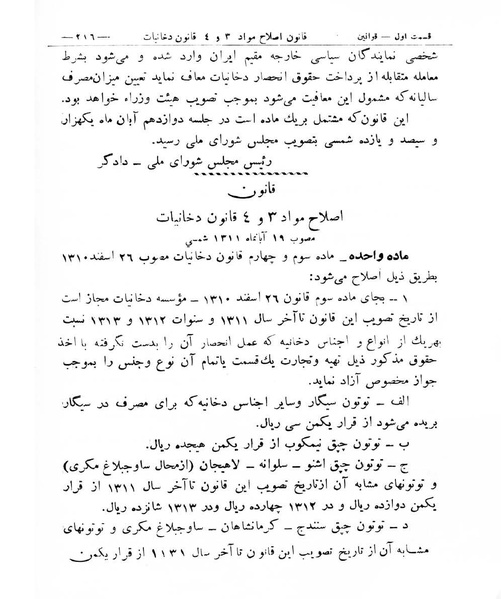 قسمت اول — قوانین قانون اصلاح مواد ۳ و ۴ قانون دخانیات —۲۱۶—
شخصی نمایندگان سیاسی خارجه مقیم ایران وارد شده و می‌شود بشرط
معامله متقابله از پرداخت حقوق انحصار دخانیات معاف نماید تعیین میزان‌مصرف
سالیانه‌که مشمول این معافیت می‌شود بموجب تصویب هیئت وزراء خواهد بود.
این قانون‌که مشتمل بریك ماده است در جلسه دوازدهم آبان ماه یکهزار
و سیصد و یازده شمسی بتصویب مجلس شورای ملی رسید.
رئیس مجلس شورای ملی — دادگر
قانون
اصلاح مواد ۳ و ۴ قانون دخانیات
مصوب ۱۹ آبانماه ۱۳۱۱ شمسی
ماده واحده_ ماده سوم و چهارم قانون دخانیات مصوب ۲۶ اسفند۱۳۱۰
بطریق ذیل اصلاح می‌شود:
۱ -- بجای ماده سوم قانون ۲۶ اسفند ۱۳۱۰ – مؤسسه دخانیات مجاز است
از تاریخ تصویب این قانون تاآخر سال ۱۳۱۱ و سنوات ۱۳۱۲ و ۱۳۱۳ نسبت
بهریك از انواع و اجناس دخانیه که عمل انحصار آن را بدست نگرفته با اخذ
حقوق مذکور ذیل تهیه وتجارت یك‌قسمت یاتمام آن نوع وجنس را بموجب
جواز مخصوص آزاد نماید.
الف – توتون سیگار وسایر اجناس دخانیه‌که برای مصرف در سیگار
بریده می‌شود از قرار یکمن سی ریال.
ب – توتون چپق نیمکوب از قرار یکمن هیجده ریال.
ج – توتون چپق اشنو – سلوانه – لاهیجان (ازمحال ساوجبلاغ مکری)
و توتونهای مشابه آن ازتاریخ تصویب این قانون تاآخر سال ۱۳۱۱ از قرار
یکمن دوازده ریال و در ۱۳۱۲ چهارده ریال ودر ۱۳۱۳ شانزده ریال.
د – توتون چپق سنندج – کرمانشاهان – ساوجبلاغ مکری و توتونهای
مشابه آن از تاریخ تصویب این قانون تا آخر سال ۱۱۳۱ از قرار یکمن